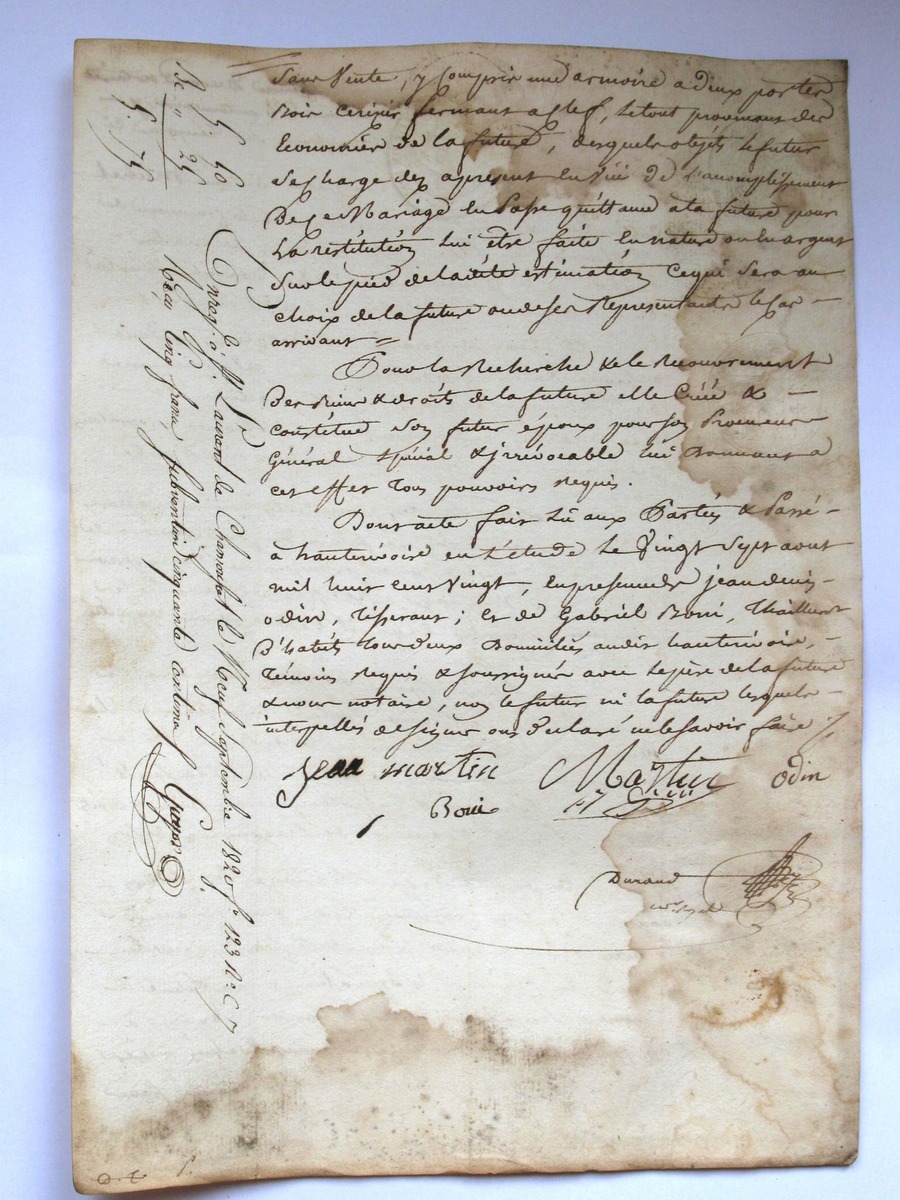 Sans Vente, y Compris une armoire a deux portes
Bois cerisier fermant a Clef, Letout provenant des
Economies de la future, desquels objets Le futur
Se Charge dez apresent En Vüe de L'acomplissement
De ce Mariage En Passe quittance a la future pour
La restitution lui être faite En nature ou En argent
Sur le pied de ladite estimation Cequi Sera au
choix de la future ou de ses Representants le Cas –
arrivant =
Pour la Recherche & le Recouvrement
Des Biens & droits de la future elle Créé & –
constitue Son futur époux pour son Procureur
Général Spécial & irrévocable lui Donnant a
cet effet Tous pouvoirs Requis.
Dont acte fait Lû aux Parties & Passé –
a hauterivoire en L'étude le Vingt Sept aout
mil huit cent Vingt, En presence de jean denis –
odin, Tisserant ; Et de Gabriel Boni, Thailleur
D'habits Tous deux Domiciliés audit hauterivoire, –
Témoins Requis & soussignés avec Lepère de la future
& nous notaire, non le futur ni la future lesquels –
interpellés de signer ont Déclaré ne le savoir faire ./.
jean martin Martin odin
Boni
Durand
not. royal
5 50
De „ 25
5. 75
Enreg.é à St. Laurent de Chamousset le Neuf Septembre 1820 f° 123 R° C 7
Reçu Cinq francs, Subvention cinquante centimes